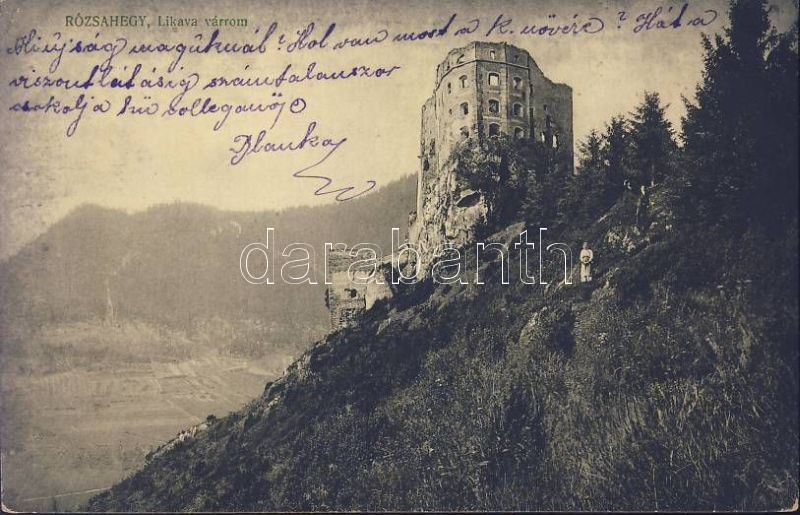 RÓZSAHEGY, Likava várrom
Mi újság maguknál? Hol van most a k. nővére? Hát a
viszontlátásig számtalanszor
csókolja hű kolleganőj
Blanka
darabanth